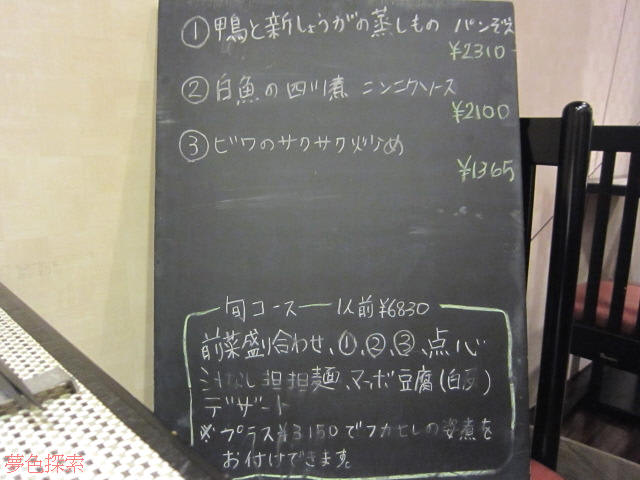 ①鴨と新しょうがの蒸しもの パンぞえ
¥2310
②白魚の四川煮 ニンニクソース
¥2100
③ビワのサクサク炒め
¥1365
旬コース 1人前¥6830
前菜盛り合わせ、①、②、③、点心
汁なし担担麺、マーボ豆腐(白 )
デザート
※プラス¥3150でフカヒレの姿煮を
お付けできます。
夢色探索